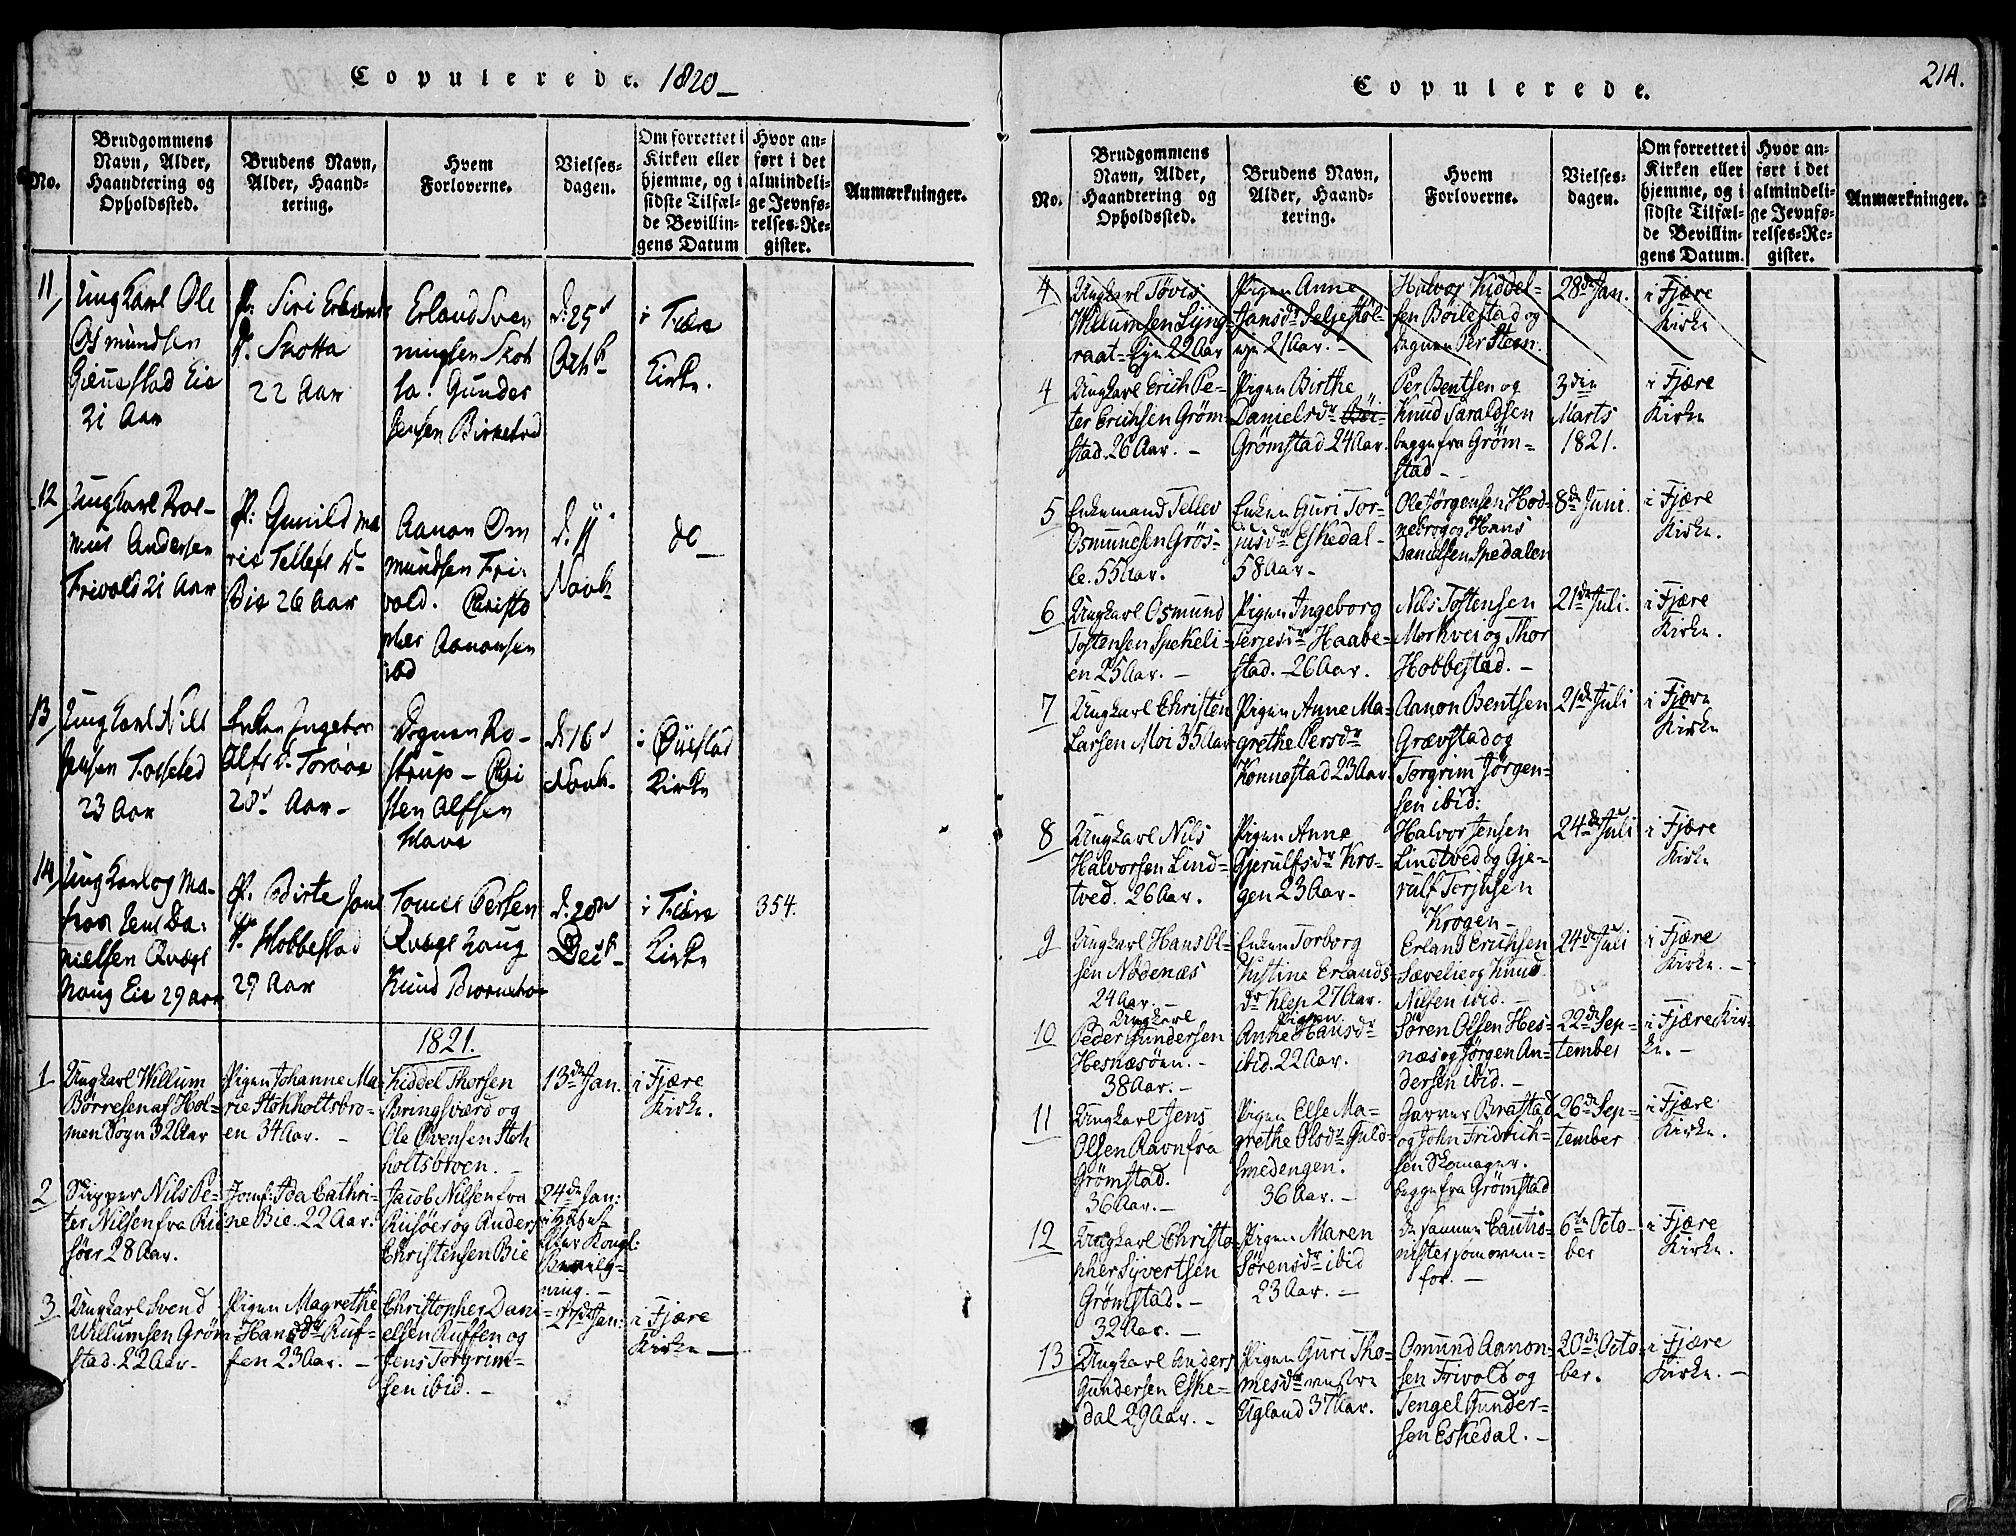 Copulerede. 1820
No.
Brudgommens
Navn, Alder,
Haandtering og
Opholdssted.
Brudens Navn,
Alder, Haand-
tering.
Hvem
Forloverne.
Vielses-
dagen.
Om forrettet i
Kirken eller
hjemme, og i
sidste Tilfæl-
de Bevillin-
gens Datum
Hvor an-
ført i det
almindeli-
ge Jevnfø-
relses-Re-
gister.
Anmærkninger.
11
Ungkarl Ole
Osmundsen
Eie
21 Aar
P: Siri Erlands
Skotta
22 Aar
Erland Sven
ningsen Skot
ta. Gunder
Jensen Birketved
d: 25
Octb
i Fiære
Kirke.
12
Ungkarl
Andersen
Frivold 21 Aar
P: Gunild Ma
rie Tellefs D
Bie 26 Aar
Aanon Om
mundsen Fri-
vold. Christo
pher Aanonsen
ibd
d: 11
Novb
do
13
Ungkarl Nils
Jensen
23 Aar
Enken Ingebor
Alfs D. Toraae
28 Aar
Degnen Ro-
strup - Chri
sten Alfsen
Have
d: 16
Novb.
i Øiestad
Kirke
14
Ungkarl og Ma-
Jens Da-
nielsen
haug Eie 29 aar
P. Birte Jens
Hobbestad
29 Aar
Tomes Persen
haug
Knud
d: 28
Decb
i Fiære
Kirke
354.
1821.
1
Ungkarl Willum
Børresen af Hol-
men Sogn 32 Aar
Pigen Johanne Ma-
rie Stokholtsbro-
en 34 Aar.
Kiddel Thorsen
Bringsværd og
Ole Evensen Stok
holtsbroen.
13de Jan.
i Fjære
Kirke.
2
Skipper Nils Pe-
ter Nilsen fra Rii
søer 28 Aar.
Jomf: Ida Cathri-
ne Bie. 22 Aar.
Jacob Nilsen fra
Riisøer og Anders
Christensen Bie
24de Jan:
i Huset
efter Kongl:
Bevilg-
ning.
3
Ungkarl Svend
Willumsen Grøm
stad. 22 Aar
Pigen Magrethe
Hansdr Ruf-
fen 23 Aar.
Christopher Dani-
elsen Ruffen og
Jens Torgrim-
sen ibid.
27de Jan:
i Fjære
Kirke
Copulerede.
214.
No.
Brudgommens
Navn, Alder,
Haandtering og
Opholdssted.
Brudens Navn,
Alder, Haand-
tering.
Hvem
Forloverne.
Vielses-
dagen.
Om forrettet i
Kirken eller
hjemme, og i
sidste Tilfæl-
de Bevillin-
gens Datum.
Hvor an-
ført i det
almindeli-
ge Jevnfø-
relses-Re-
gister.
Anmærkninger.
4
Ungkarl Tøvis
Willumsen Ling-
raat-Eje 22 Aar
Pigen Anne
Jansdr Seljestøl-
eje 21 Aar.
Halvor Kiddel-
sen Bøilestad og
Degnen Per Steen.
28de Jan.
i Fjære
Kirke
4
Ungkarl Erich Pe-
ter Erichsen Grøm-
stad. 26 Aar.
Pigen Birthe
Danielsdr
Grømstad 24 Aar.
Per Bentsen og
Knud Taraldsen
begge fra Grøm-
stad
3die
Marts
1821.
i Fjære
Kirke
5
Enkemand Tellev
Osmundsen Grøs-
le. 55 Aar.
Enken Guri Tor-
jusdr Eskedal
58 Aar
Ole Jørgensen Hod-
nebrog og Hans
Danielsen Spedalen
8de Juni.
i Fjære
Kirke.
6
Ungkarl Osmund
Tostensen Spekeli-
en 25 Aar.
Pigen Ingeborg
Terjesdr Haabe-
stad. 26 Aar.
Nils Tostensen
Morkvei og Thor
Hobbestad.
21de Juli.
i Fjære
Kirke.
7
Ungkarl Christen
Larsen Moi 35 Aar
Pigen Anne Ma-
grethe Persdr
Konnestad 23 Aar.
Aanon Bentsen
Grævstad og
Torgrim Jørgen-
sen ibid:
21de Juli
i Fjære
Kirke
8
Ungkarl Nils
Halvorsen Lind-
tved. 26 Aar.
Pigen Anne
Gjerulfsdr Kro-
gen 23 Aar.
Halvor Jensen
Lindtved og Gje-
rulf Terjusen
Krogen
24de Juli
i Fjære
Kirke
9
Ungkarl Hans Ol-
sen Nødenæs
24 Aar.
Enken Torborg
Kistine Erlands-
dr Klep 27 Aar.
Erland Erichsen
Sævelie og Knud
Nilsen ibid.
24de Juli
i Fjære
Kirke.
10
Ungkarl
Peder Gundersen
Hesnæsøen.
38 Aar.
Pigen
Anne Hansdr
ibid. 22 Aar.
Søren Olsen Hes-
næs og Jørgen An-
dersen ibid.
22de Sep-
tember
i Fjære Kir-
ke.
11
Ungkarl Jens
Olsen Ravn fra
Grømstad.
36 Aar.
Pigen Else Ma-
grethe Olsdr Guld-
smedengen.
36 Aar.
Garver Bratstad
og John Fridrich-
sen Skomager.
begge fra Grømstad
26de Sep-
tember
i Fjære
Kirke.
12
Ungkarl Christo-
pher Syvertsen
Grømstad.
32 Aar.
Pigen Maren
Sørensdr ibid
23 Aar.
De samme Cautio-
nister som oven-
for.
6te Octo-
ber
i Fjære
Kirke.
13
Ungkarl Anders
Gundersen Eske-
dal 29 Aar.
Pigen Guri Tho-
mesdr vestre
Ugland 37 Aar.
Omund Aanon-
sen Frivold og
Tengel Gunder-
sen Eskedal.
20de Octo-
ber.
i Fjære
Kirke.